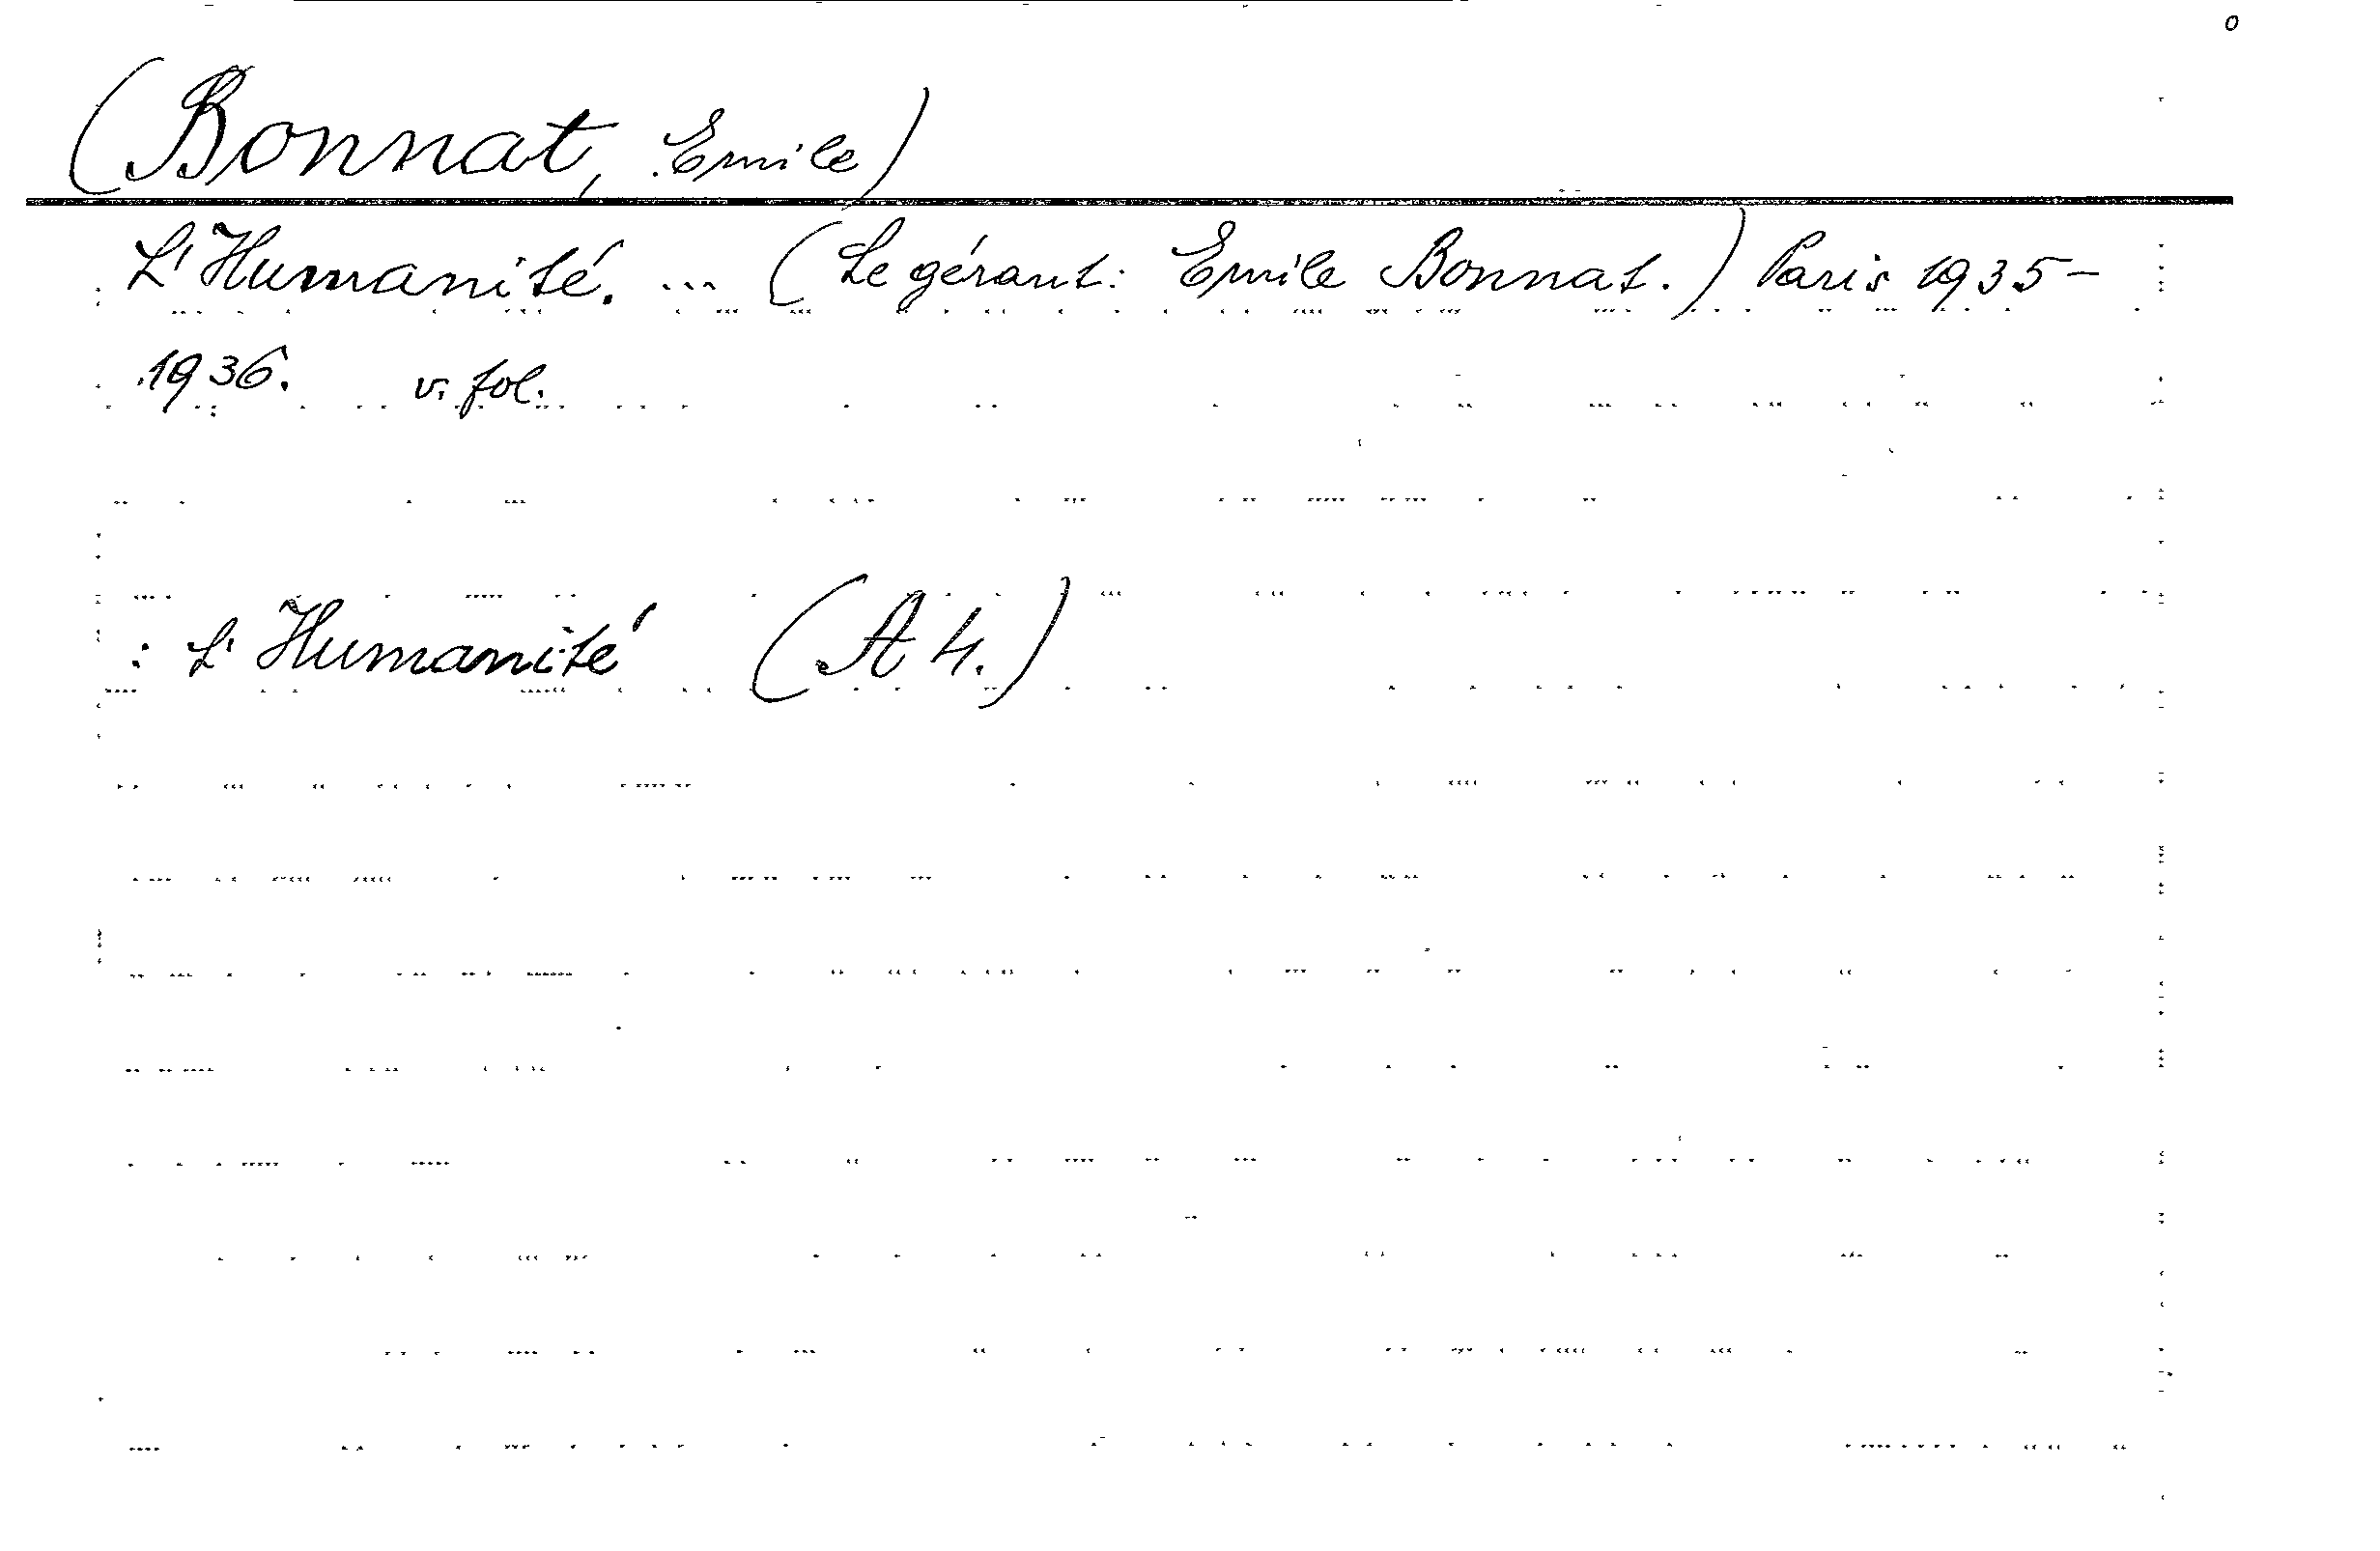 (Bonnat, Emile)
L'Humanité. ... (Le gérant: Emile Bonnat.) Paris 1935-
1936. v. fol.
: L'Humanité (A 4.)